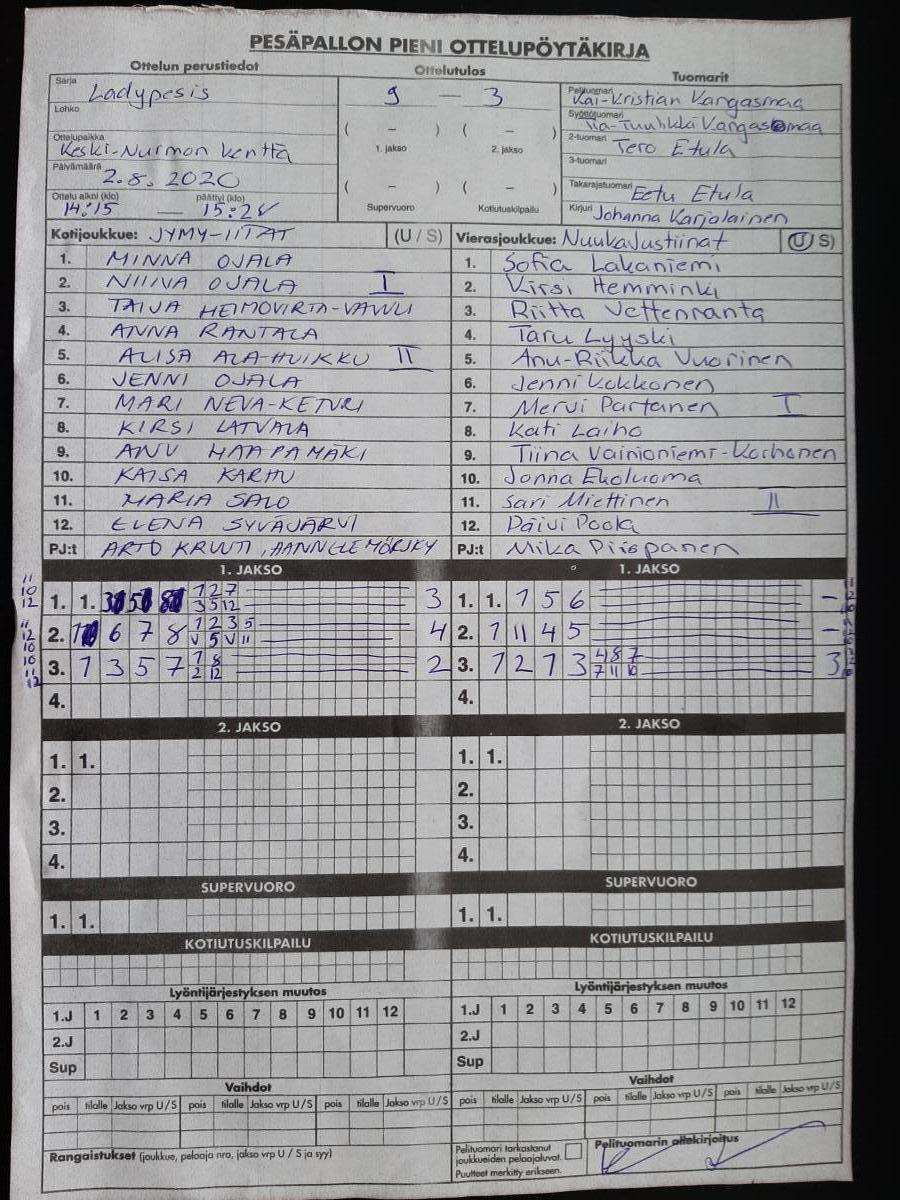 PESÄPALLON PIENI OTTELUPÖYTÄKIRJA
Ottelun perustiedot
Ottelutulos
Tuomarit
Sarja
Ladypesis
Lohko
Ottelupaikka
Keski-Nurmon kenttä
Päivämäärä
2.8.2020
Ottelu alkoi (klo)
päättyi (klo)
14:15 — 15:25
9 — 3
( – ) ( – )
1. jakso 2. jakso
( – ) ( – )
Supervuoro Kotiutuskilpailu
Pelituomari
Kai-Kristian Kangasmaa
Syöttötuomari
2-tuomari
Tero Etula
3-tuomari
Takarajatuomari
Eetu Etula
Kirjuri
Johanna Karjalainen
Kotijoukkue: JYMY-IITAT (U / S)
1. MINNA OJALA
2. NIINA OJALA I
3. TAIJA HEIMOVIRTA-VAINULI
4. ANNA RANTALA
5. ALISA ALA-HUIKKU II
6. JENNI OJALA
7. MARI NEVA-KETURI
8. KIRSI LATVALA
9. ANU HAAPAMÄKI
10. KAISA KARHU
11. MARIA SALO
12. ELENA SYVÄJÄRVI
PJ:t ARTO
Vierasjoukkue: NuukaJustiinat (U / S)
1. Sofia Lakaniemi
2. Kirsi Hemminki
3. Riitta Vettenranta
4. Taru Lyyski
5. Anu-Riikka Vuorinen
6. Jenni Kokkonen
7. Mervi Partanen I
8. Kati Laiho
9. Tiina Vainioniemi-Korhonen
10. Jonna Ekoluoma
11. Sari Miettinen II
12. Päivi Pooka
PJ:t Mika Piispanen
1. JAKSO
1. 1. 1 2 7 3
3 5 12
2. 6 7 8 1 2 3 5 4
V 5 V 11
3. 1 3 5 7 1 8 2
2 12
4.
1. JAKSO
1. 1. 1 5 6 –
2. 1 11 4 5 –
3. 1 2 1 3 4 8 7 3
7 11 10
4.
2. JAKSO
1. 1.
2.
3.
4.
2. JAKSO
1. 1.
2.
3.
4.
SUPERVUORO
1. 1.
SUPERVUORO
1. 1.
KOTIUTUSKILPAILU
KOTIUTUSKILPAILU
Lyöntijärjestyksen muutos
1.J 1 2 3 4 5 6 7 8 9 10 11 12
2.J
Sup
Lyöntijärjestyksen muutos
1.J 1 2 3 4 5 6 7 8 9 10 11 12
2.J
Sup
Vaihdot
pois tilalle Jakso vrp U/S pois tilalle Jakso vrp U/S pois tilalle Jakso vrp U/S
Vaihdot
pois tilalle Jakso vrp U/S pois tilalle Jakso vrp U/S pois tilalle Jakso vrp U/S
Rangaistukset (joukkue, pelaaja nro, jakso vrp U / S ja syy)
Pelituomari tarkastanut
joukkueiden pelaajaluvat.
Puutteet merkitty erikseen.
Pelituomarin allekirjoitus